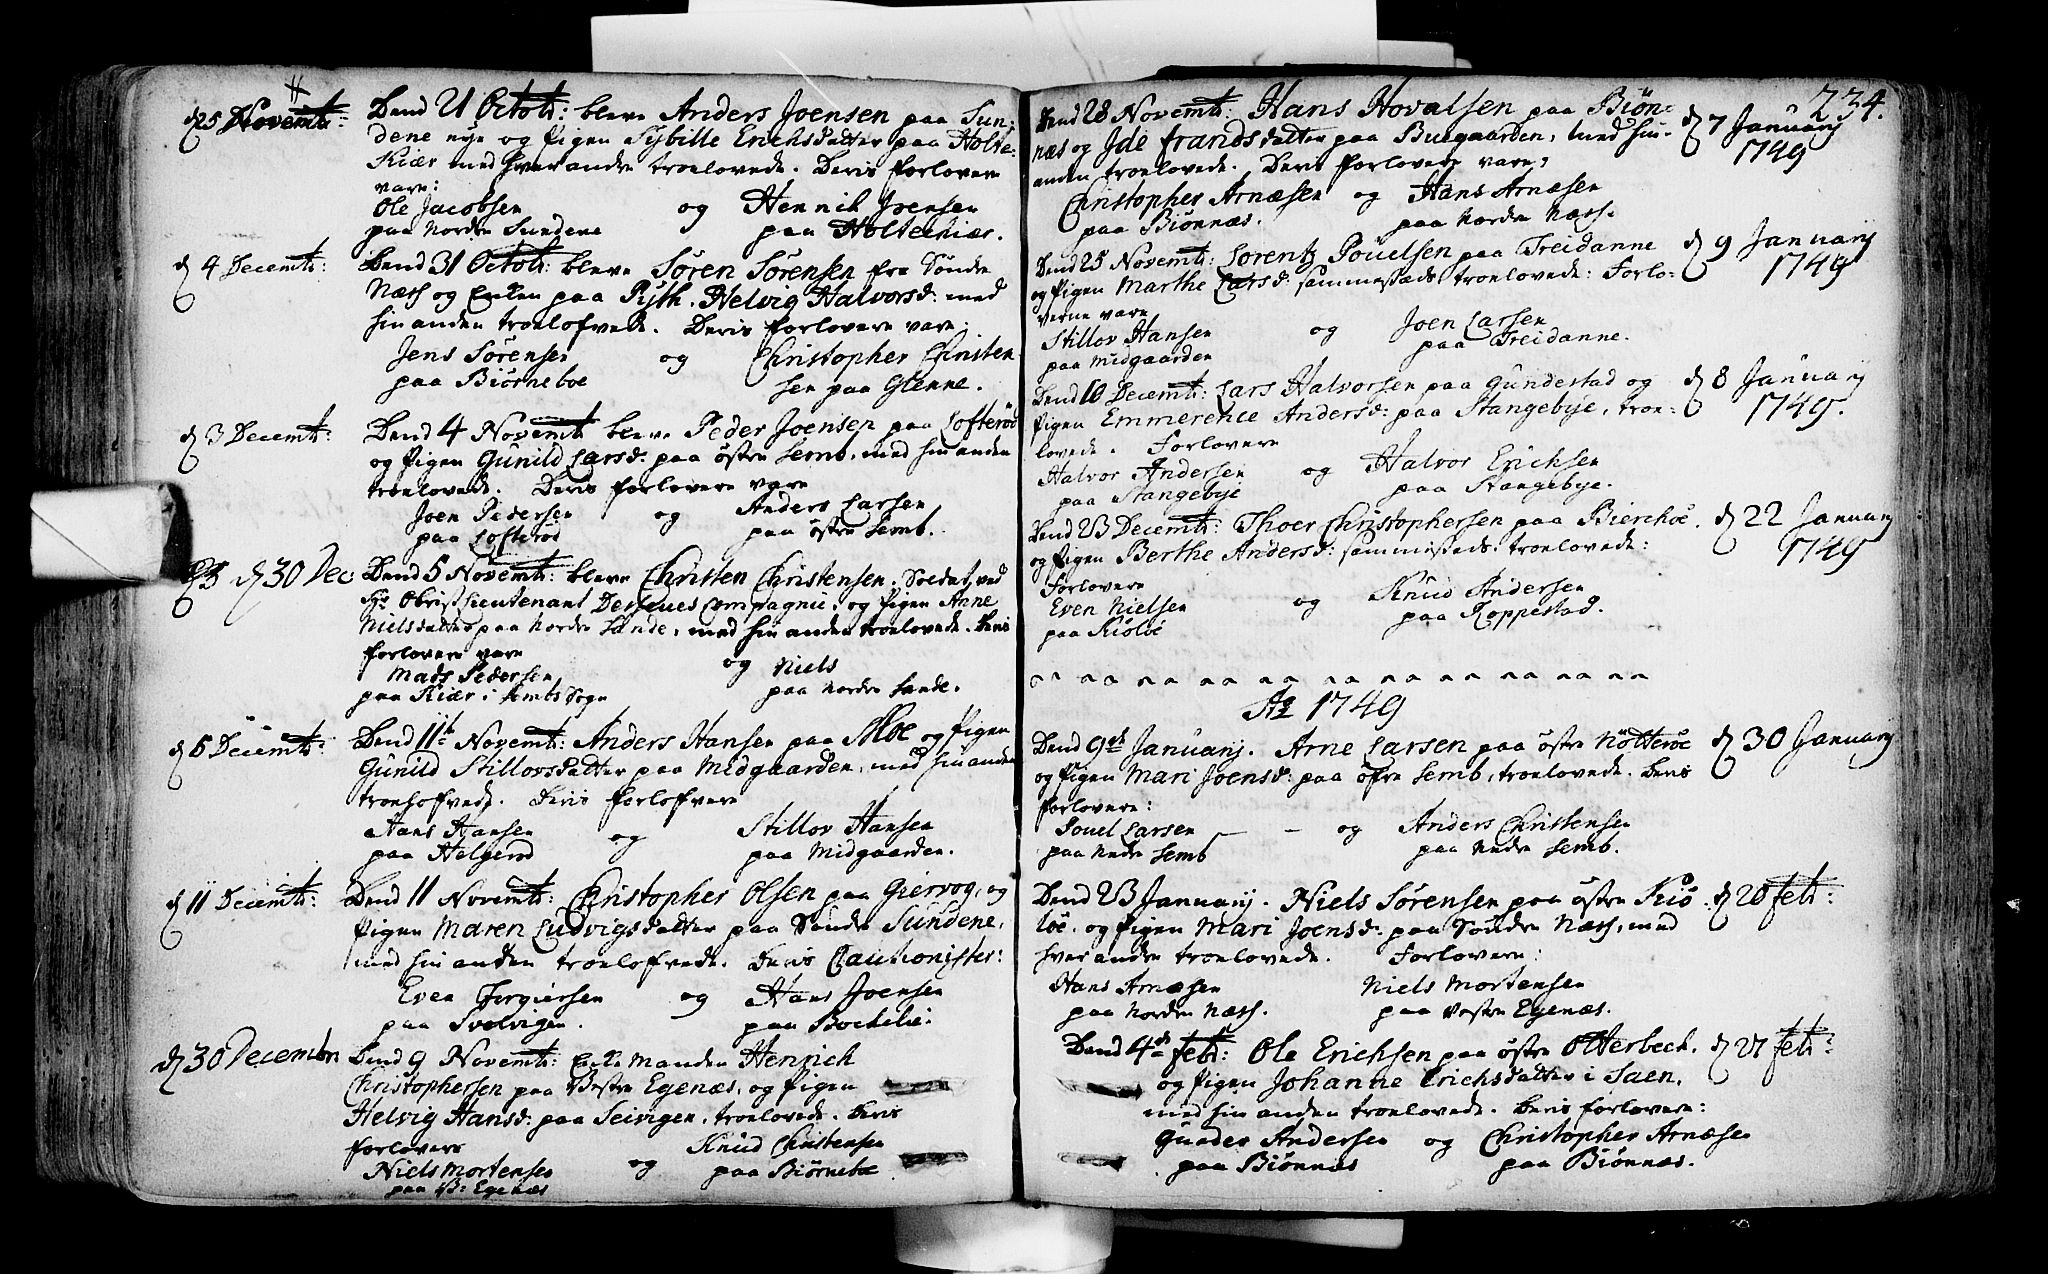 d 25 Novemb:
Dend 21 Octob: bleve Anders Joensen paa Sun-
dene nye og Pigen Sybille Erichsdatter paa Holte-
Kiær med hverandre troelovede. Deris forlovere
vare:
Ole Jacobsen og Hennik Joensen
paa Nordre Sundene paa Holtekiær.
d 4 Decemb:
Dend 31 Octob: bleve Søren Sørensen fra Søndre
Næss og Enken paa Pyth. Helvig Halvorsd: med
hin anden troelofvede. Deris forlovere vare:
Jens Sørensen og Christopher Christen-
paa Biørneboe sen paa Glenne.
d 3 Decemb:
Dend 4 Novemb bleve Peder Joensen paa Lofterød
og Pigen Gunild Larsd: paa østre Semb, med hin anden
troelovede. Deris forlovere vare
Joen Pedersen og Anders Larsen
paa Lofterød paa østre Semb.
d 30 Dec
Dend 5 Novemb: bleve Christen Christensen. Soldat ved
Hr Obristlieutenant Compagnie, og Pigen Anne
Nielsdatter paa Nordre Sande, med hin anden troelovede. Deris
forlovere vare
Mads Pedersen og Niels
paa Kiær i Sembs Sogn paa Nordre Sande.
d 5 Decemb:
Dend 11te Novemb: Anders Hansen paa Moe og Pigen
Gunild Stillovsdatter paa Midgaarden, med hin anden
troelofvede. Deris forlofvere
Hans Hansen og Stillov Hansen
paa Halgerød paa Midgaarden.
d 11 Decemb:
Dend 11 Novemb: Christopher Olsen paa Giervog, og
Pigen Maren Ludvigsdatter paa Søndre Sundene,
med hin anden troelofvede. Deris Cautionister:
Even Torgiersen og Hans Joensen
paa Svolvigen. paa Bockelie.
d 30 Decembr
Dend 9 Novemb: Enke Manden Henrich
Christophersen paa Vestre Egenæs, og Pigen
Helvig Hansd: paa Seivigen, troelovede. Deris
forlovere
Niels Mortensen og Knud Christensen
paa V: Egenæs paa Biørneboe
234.
Dend 28 Novemb: Hans Hovalsen paa Biøn-
næs og Ide frandsdatter paa Buegaarden, med hin-
anden troelovede. Deris forlovere vare,
Christopher Arnæsen og Hans Arnæsen
paa Biønnæs. paa Nordre Næss.
d 7 Januarj
1749
Dend 25 Novemb: Lorentz Pouelsen paa Treidanne
og Pigen Marthe Larsd: sammestæds troelovede: Forlo-
verne vare
Stillov Hansen og Joen Larsen
paa Midgaarden paa Treidanne.
d 9 Januarj
1749
Dend 10 Decemb: Lars Halvorsen paa Gundestad og
Pigen Emmerence Andersd: paa Stangebye, troe-
lovede. Forlovere
Halvor Andersen og Halvor Erichsen
paa Stangebye paa Stangebye.
d 8 Januarj
1749.
Dend 23 Decemb: Thoer Christophersen paa Bierchøe.
og Pigen Berthe Andersd: sammesteds: troelovede:
forlovere
Even Nielsen og Knud Andersen
paa Kiøløe paa Roppestad.
d 22 Januarj
1749
Ao 1749
Dend 9de Januarj. Arne Larsen paa østre Nøtterøe
og Pigen Mari Joensd: paa øfre Semb, troelovede. Deris
forlovere:
Pouel Larsen og Anders Christensen
paa Nedre Semb paa Nedre Semb.
d 30 Januarj
Dend 23 Januarj. Niels Sørensen paa østre Kiø-
løe. og Pigen Mari Joensd: paa Søndre Næss, med
hver andre troelovede. Forlovere:
Hans Arnæsen Niels Mortensen
paa Norden Næss. paa Vestre Egenæs.
d 20 febr:
Dend 4de febr: Ole Erichsen paa østre Otterbech.
og Pigen Johanne Erichsdatter i Saen,
med hin anden troelovede. Deris forlovere:
Gunder Andersen og Christopher Arnæsen
paa Biønnæs paa Biønnæs.
d 27 febr: